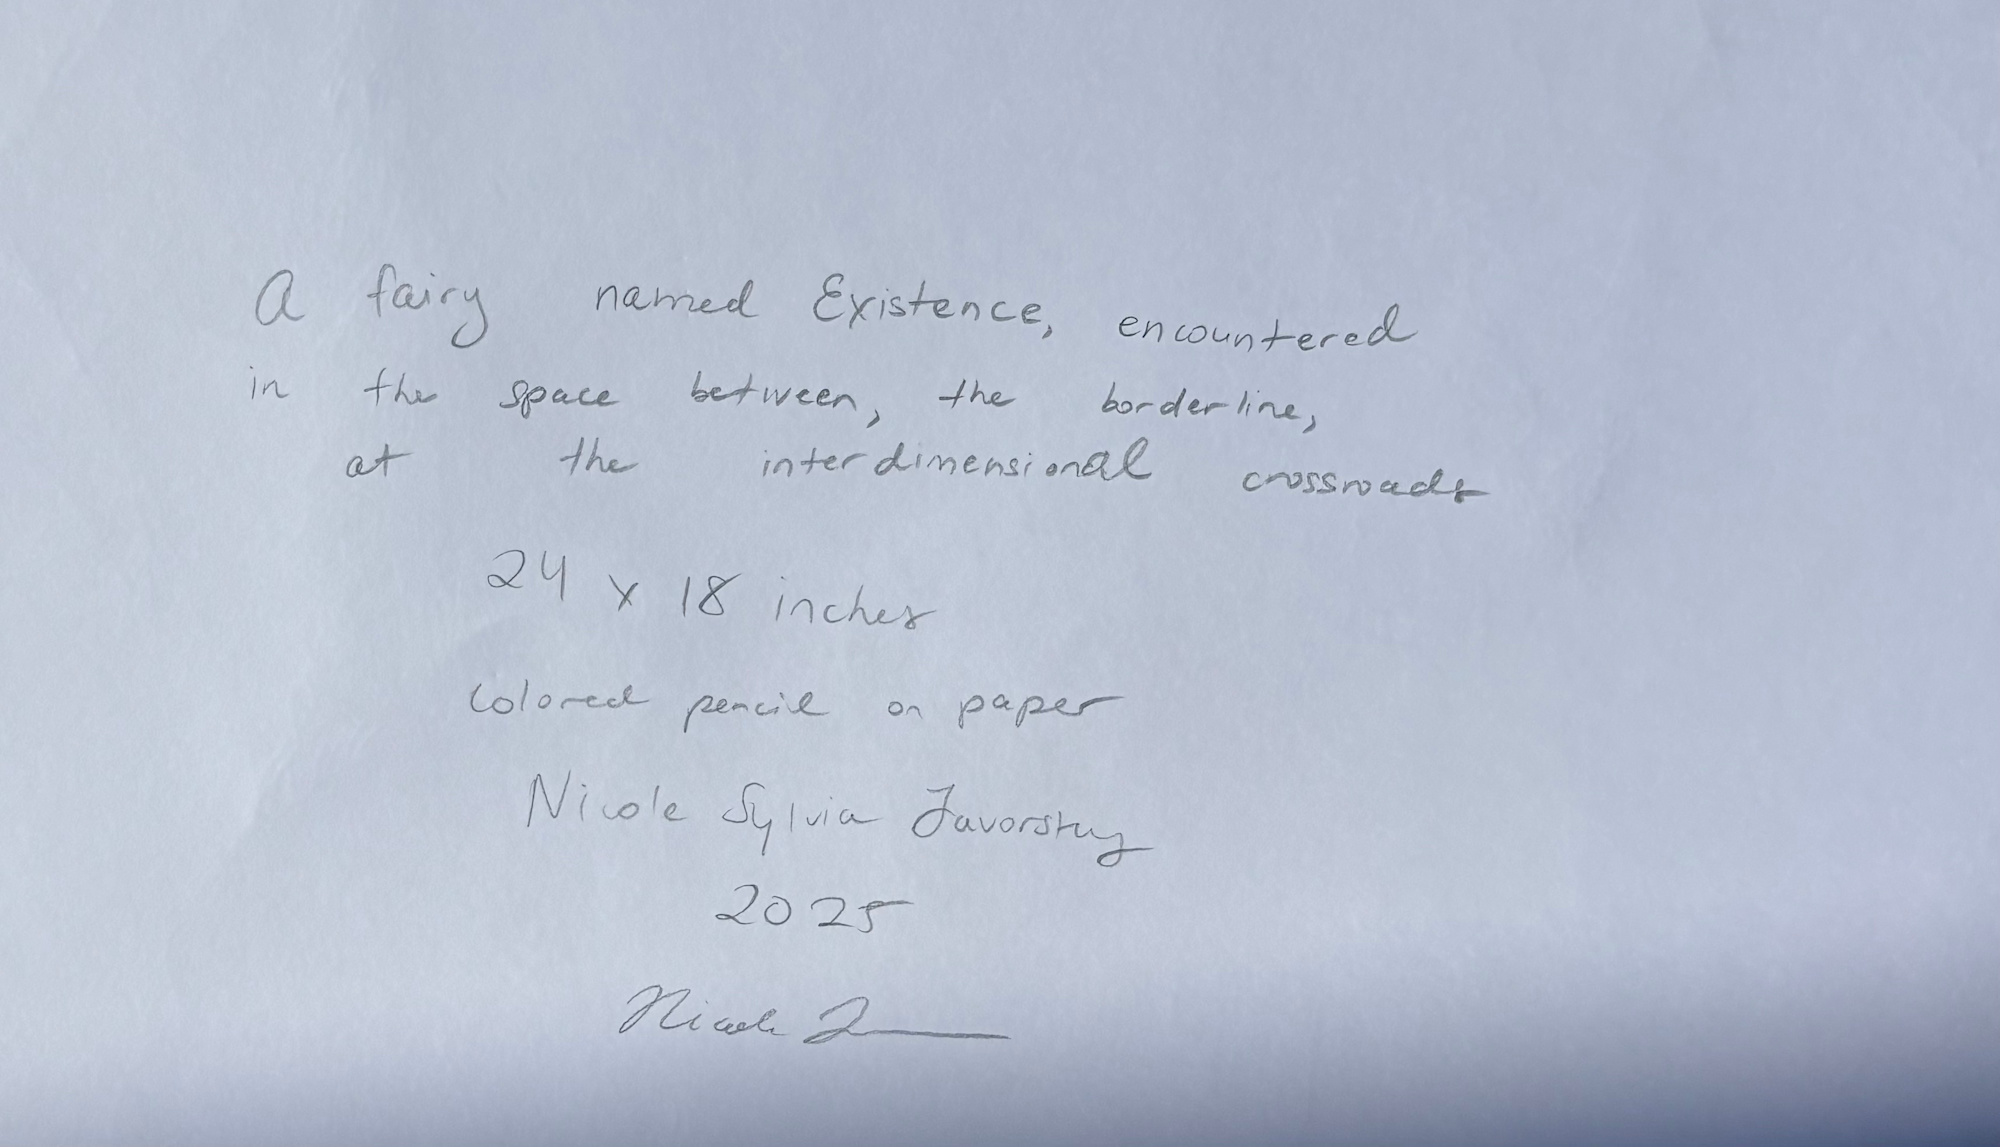 A fairy named Existence, encountered
in the space between, the borderline,
at the interdimensional crossroads
24 x 18 inches
colored pencil on paper
Nicole Sylvia Javorsky
2025
Nicole J